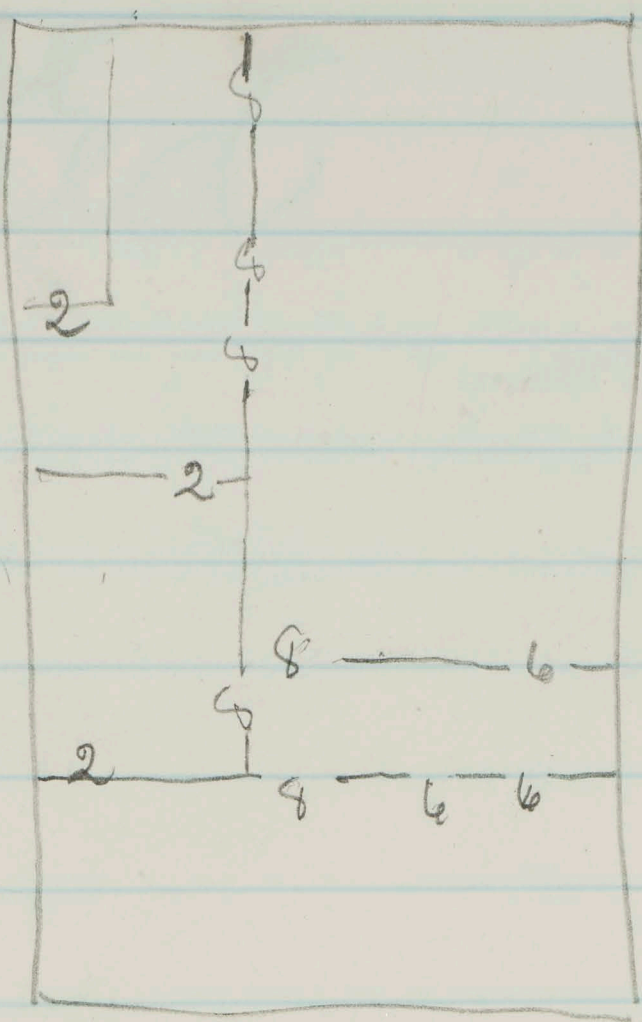 8
8
2
8
2
8 6
8
2
8 6 6